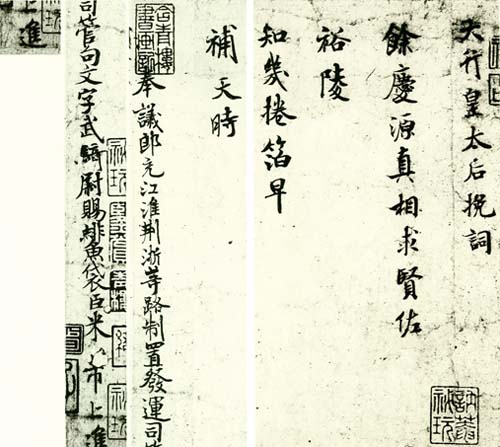 大行皇太后挽詞
餘慶源真相求賢佐
裕陵
知幾捲箔早
補天時
奉議郎充江淮荆浙等路制置發運司
司管句文字武騎尉賜緋魚袋臣米芾上進
上進